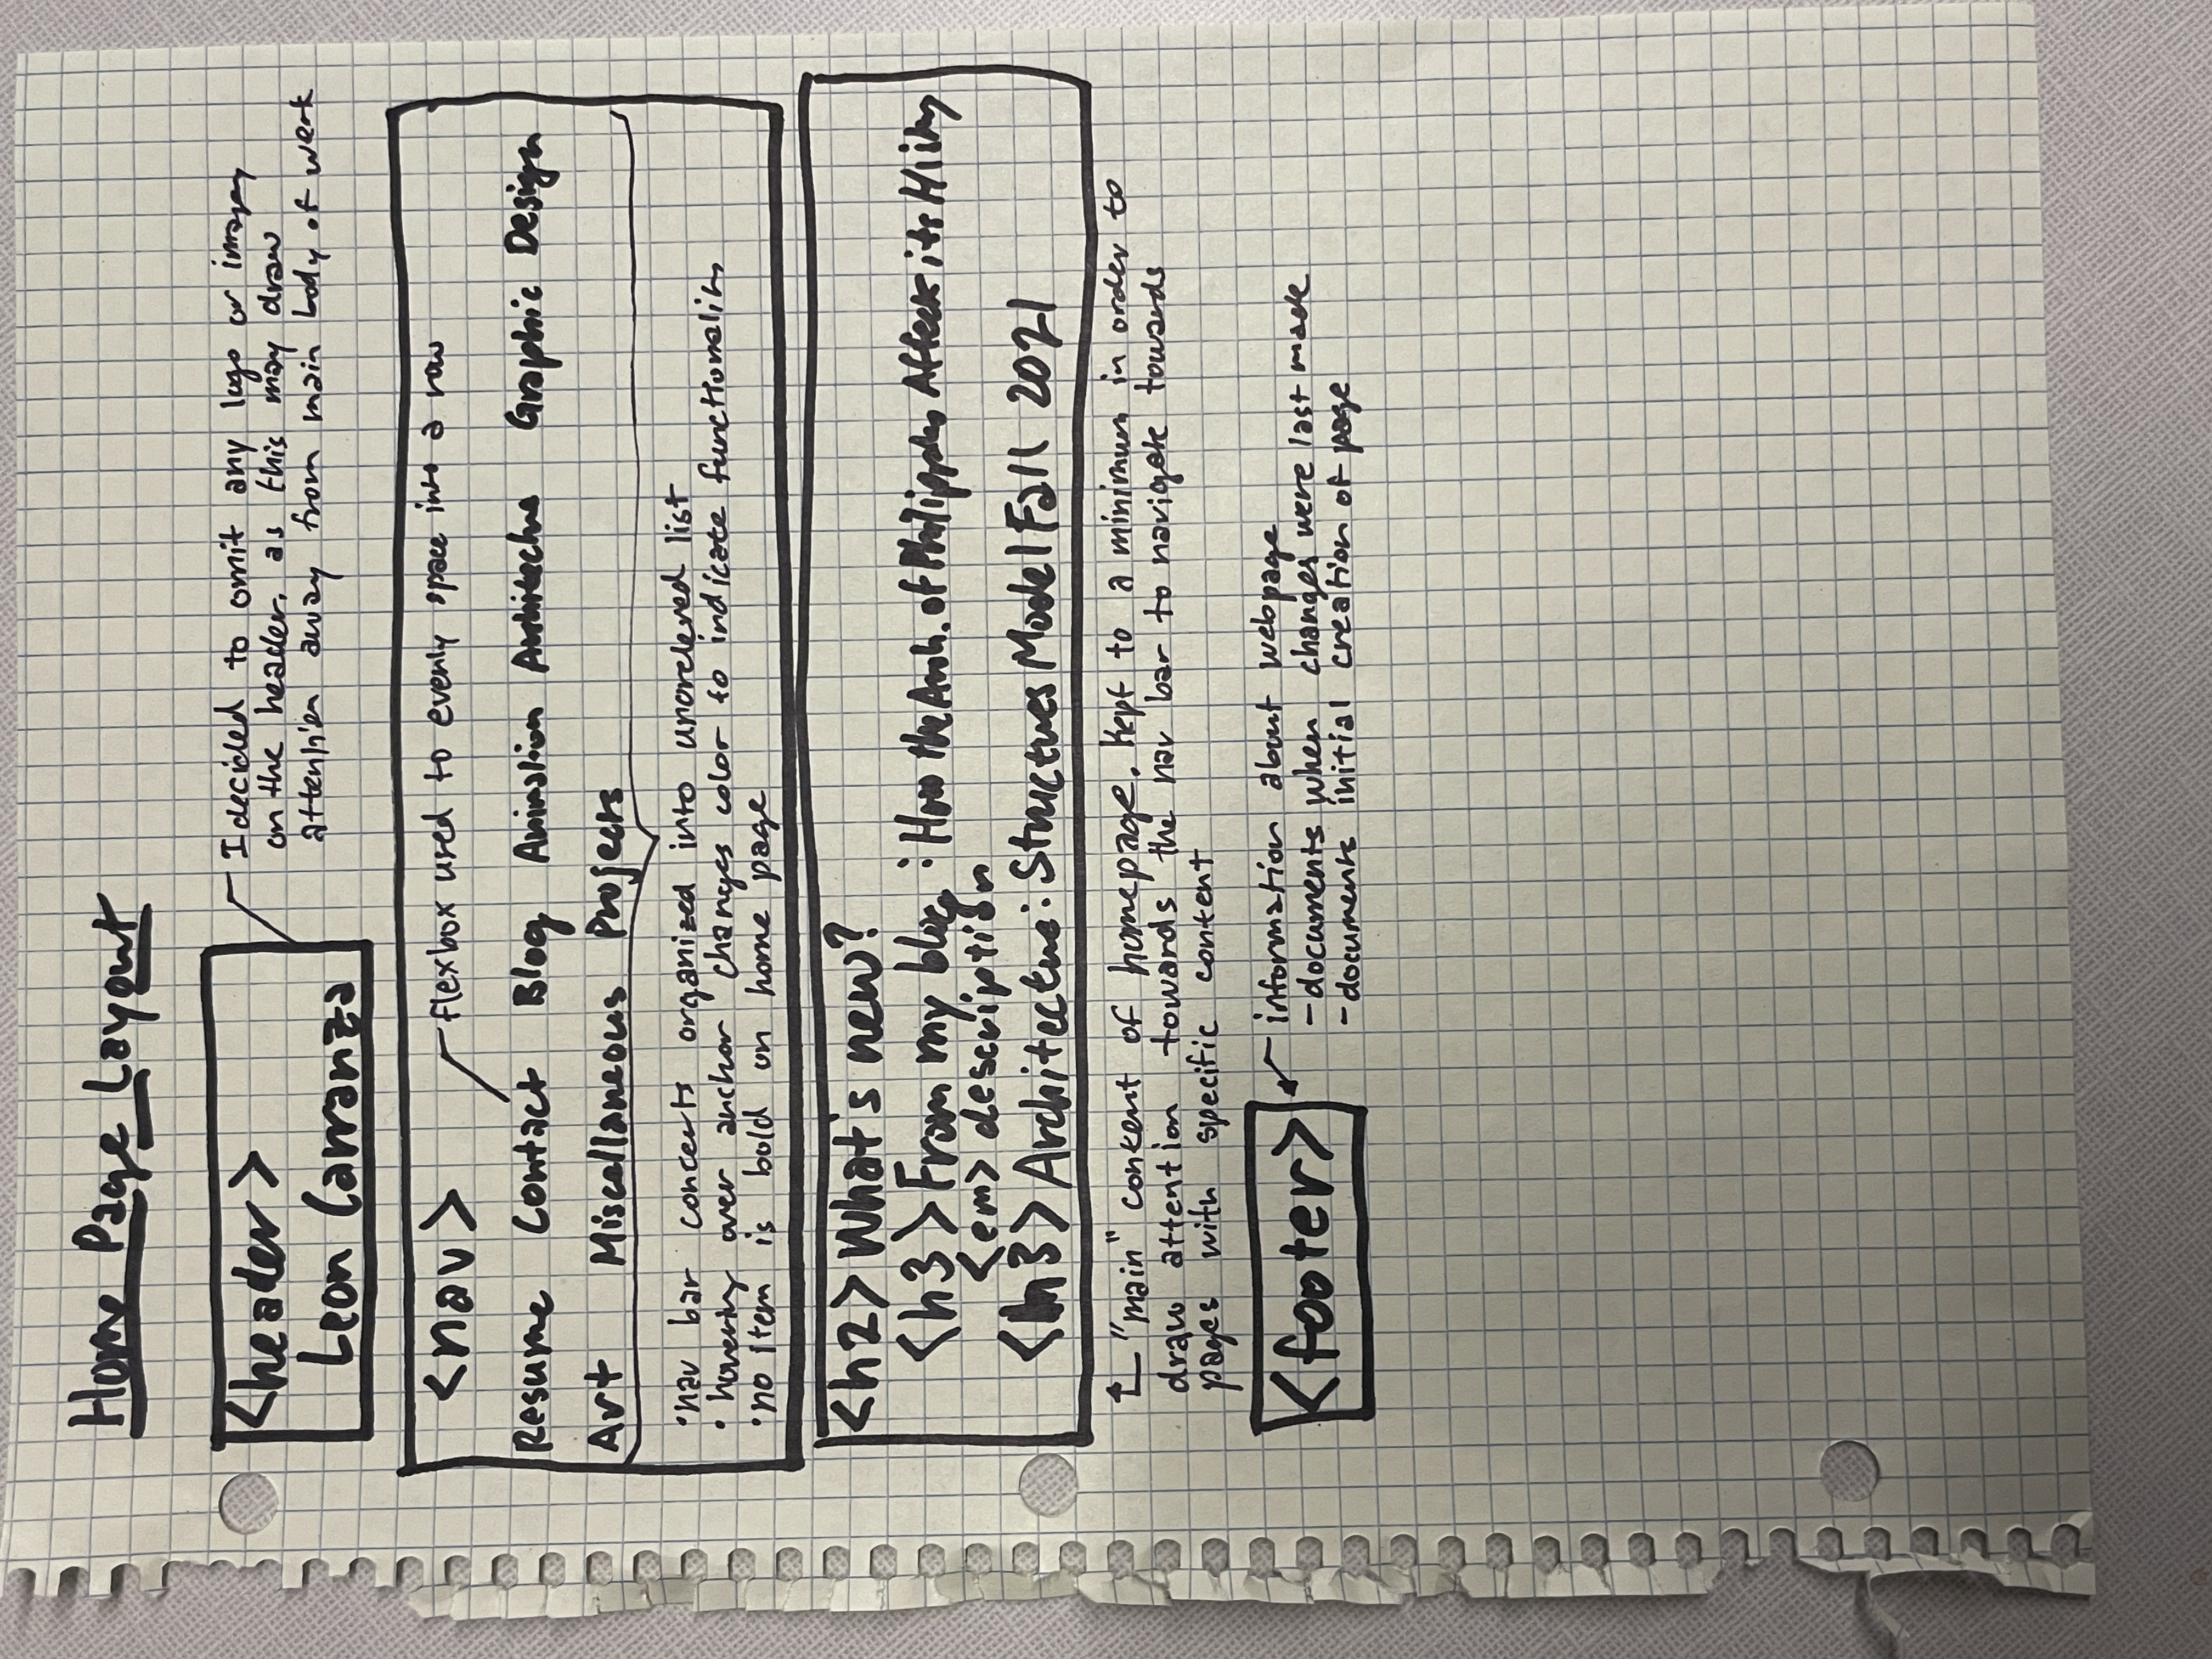 Home Page Layout
<header>
Leon Carranza
I decided to omit any logo or imagery
on the header. as this may draw
attention away from main body of work
<nav>
flexbox used to evenly space into a row
Resume Contact Blog Animation Architecture Graphic Design
Art Miscellaneous Projects
• nav bar contents organized into unordered list
• hovering over anchor changes color to indicate functionality
• no item is bold on home page
<h2> What's new?
<h3> From my blog: How the Arch. of Philippines Affect its History
<em> description
<h3> Architecture: Structures Model Fall 2021
"main" content of homepage. Kept to a minimum in order to
draw attention towards the nav bar to navigate towards
pages with specific content
<footer>
information about webpage
- documents when changes were last made
- documents initial creation of page